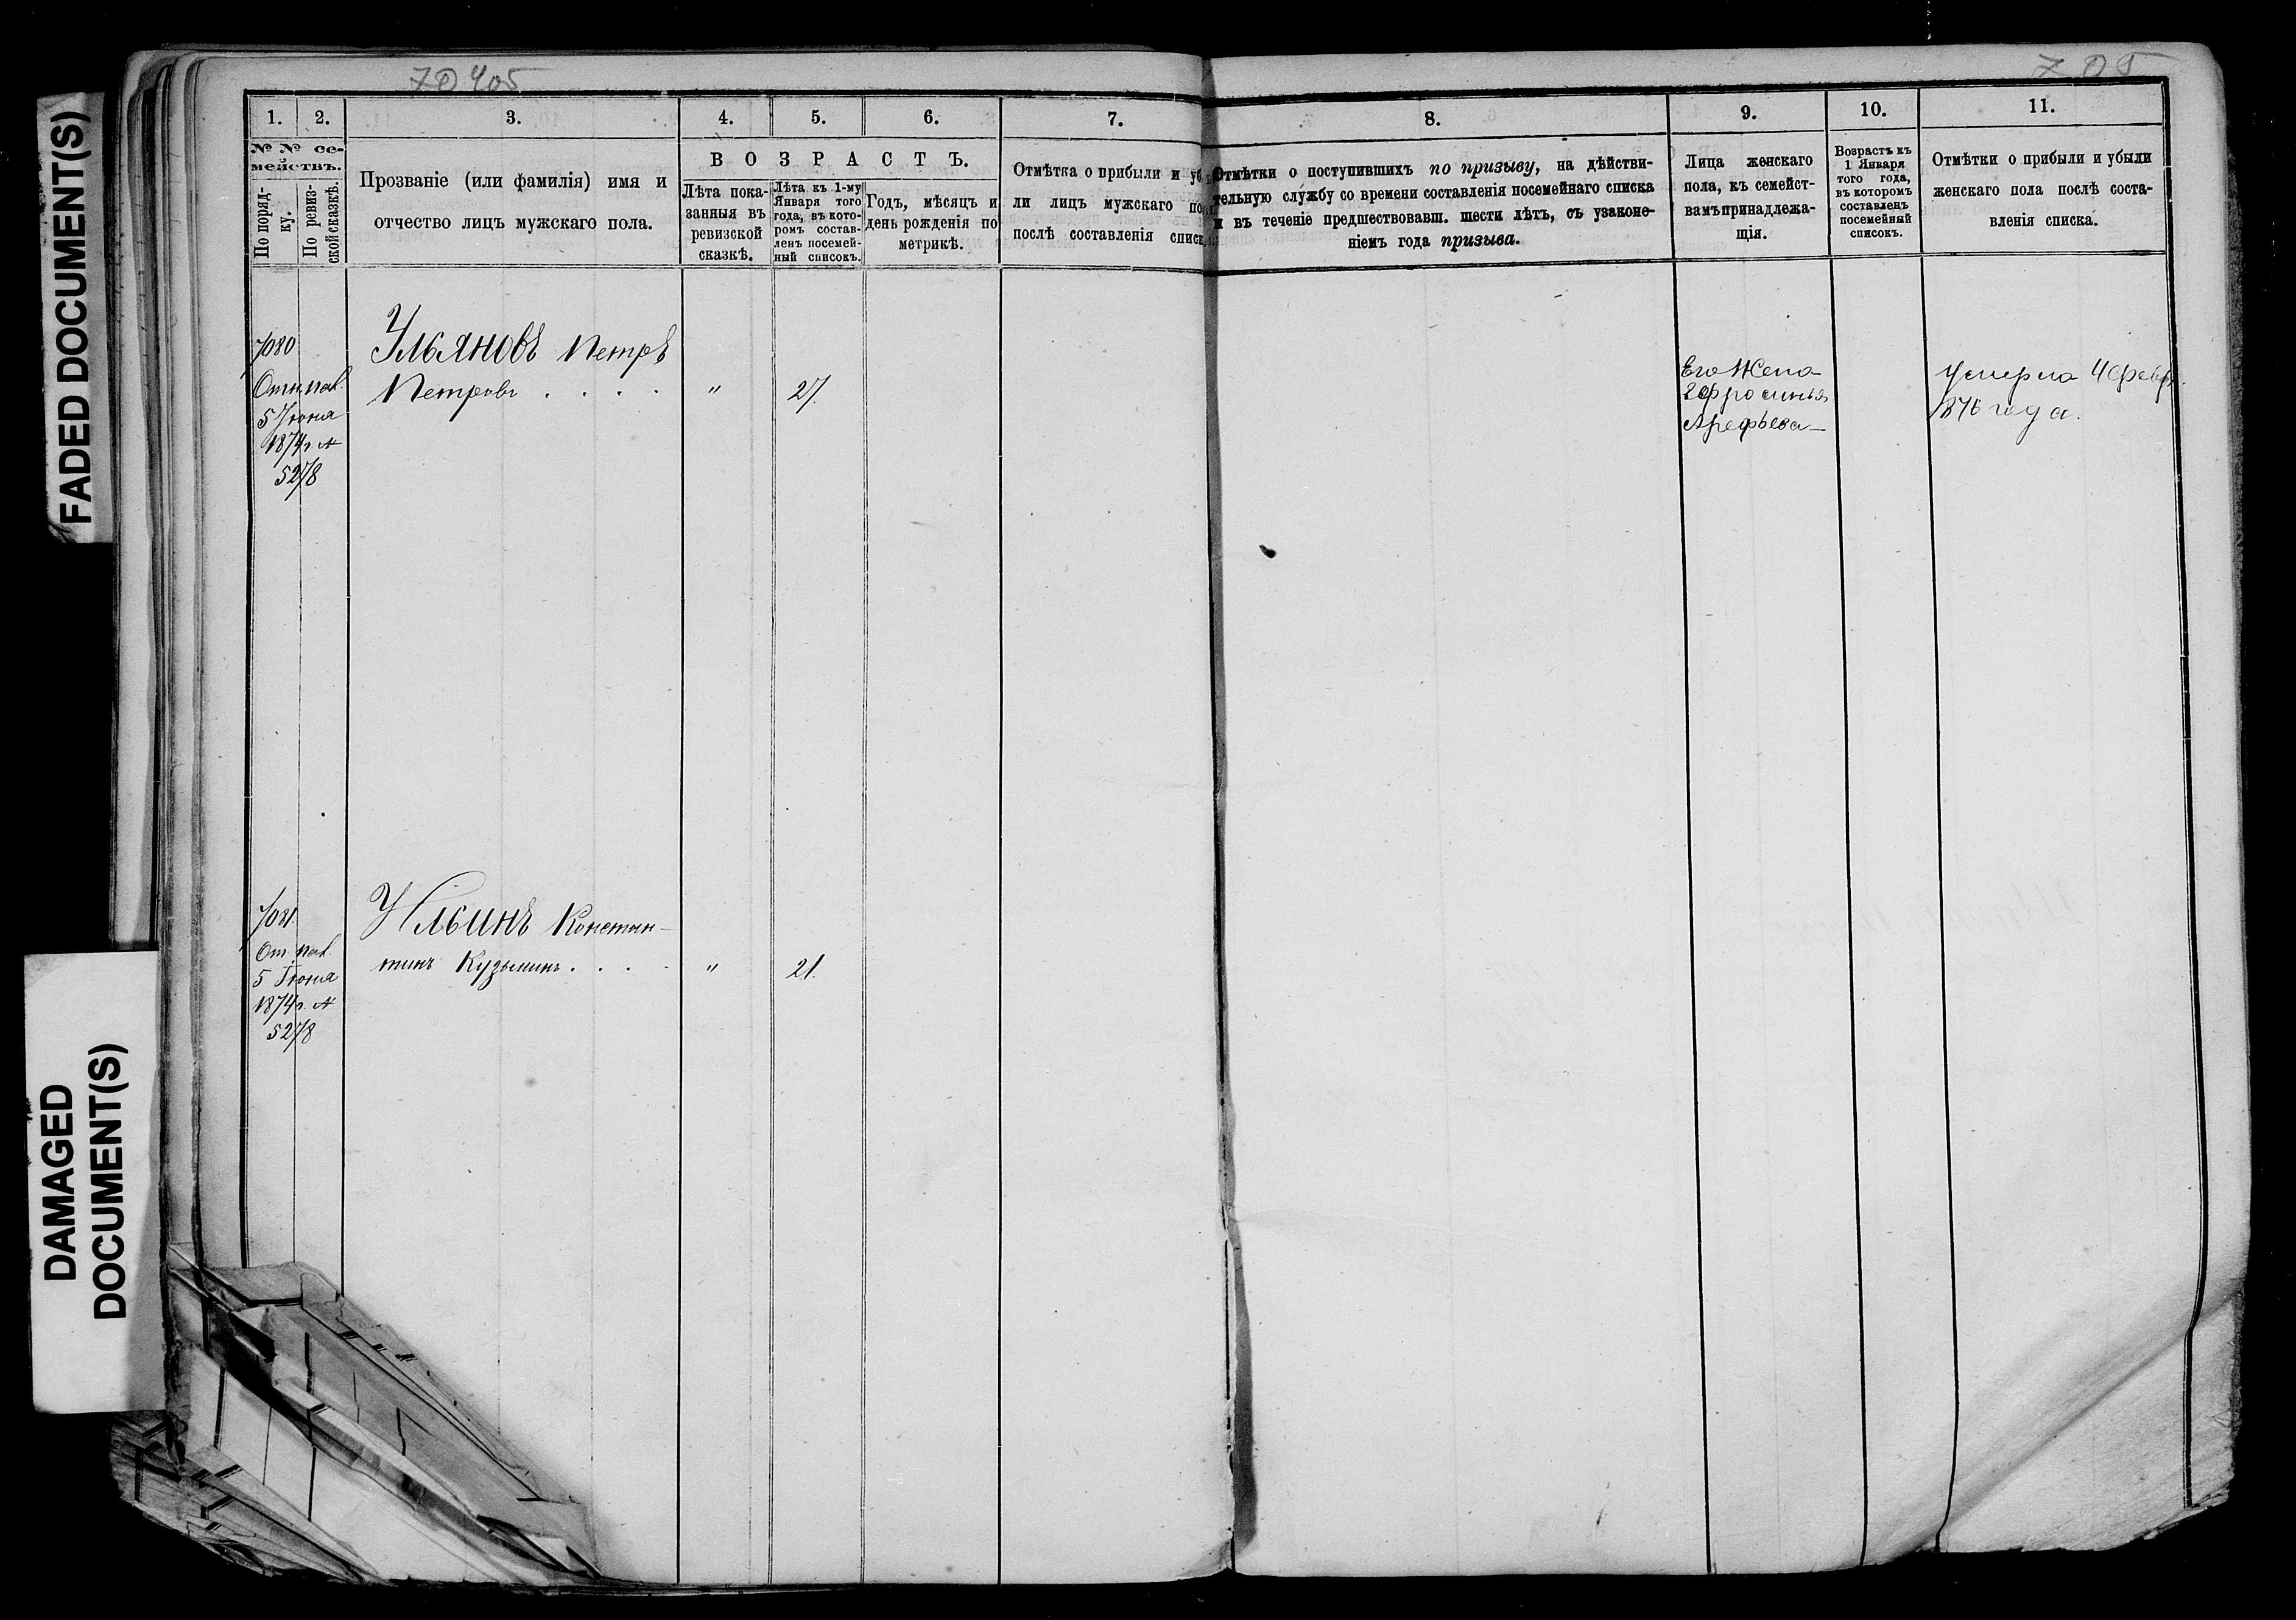 FADED DOCUMENT(S)
DAMAGED
DOCUMENT(S)
405
1.
2.
3.
4.
5.
6.
7.
8.
9.
10.
11.
№ № се-
мействъ.
По поряд-
ку.
По ревиз-
ской сказкѣ.
Прозваніе (или фамилія) имя и
отчество лицъ мужскаго пола.
ВОЗРАСТЪ.
Лѣта пока-
занныя въ
ревизской
сказкѣ.
Лѣта къ 1-му
Января того
года, въ кото-
ромъ состав-
ленъ посемей-
ный списокъ.
Годъ, мѣсяцъ и
день рожденія по
метрикѣ.
Отмѣтка о прибыли и уб
ли лицъ мужскаго по
послѣ составленія списк
Отмѣтки о поступившихъ по призыву, на дѣйстви-
тельную службу со времени составленія посемейнаго списка
и въ теченіе предшествовавш. шести лѣтъ, съ узаконе-
ніемъ года призыва.
Лица женскаго
пола, къ семейст-
вамъ принадлежа-
щія.
Возрастъ къ
1 Января
того года,
въ которомъ
составленъ
посемейный
списокъ.
Отмѣтки о прибыли и убыли
женскаго пола послѣ соста-
вленія списка.
7080
5 Іюня
1874 г. №
5278
Ульяновъ Петръ
Петровъ . . . .
"
27.
Его Жена
Ефросинья
Арефьева
Умерла 4 февр.
1876 года.
7081.
5 Іюня
1874 г. №
5278
Ильинъ Констан-
тинъ Кузьминъ . . . .
"
21.